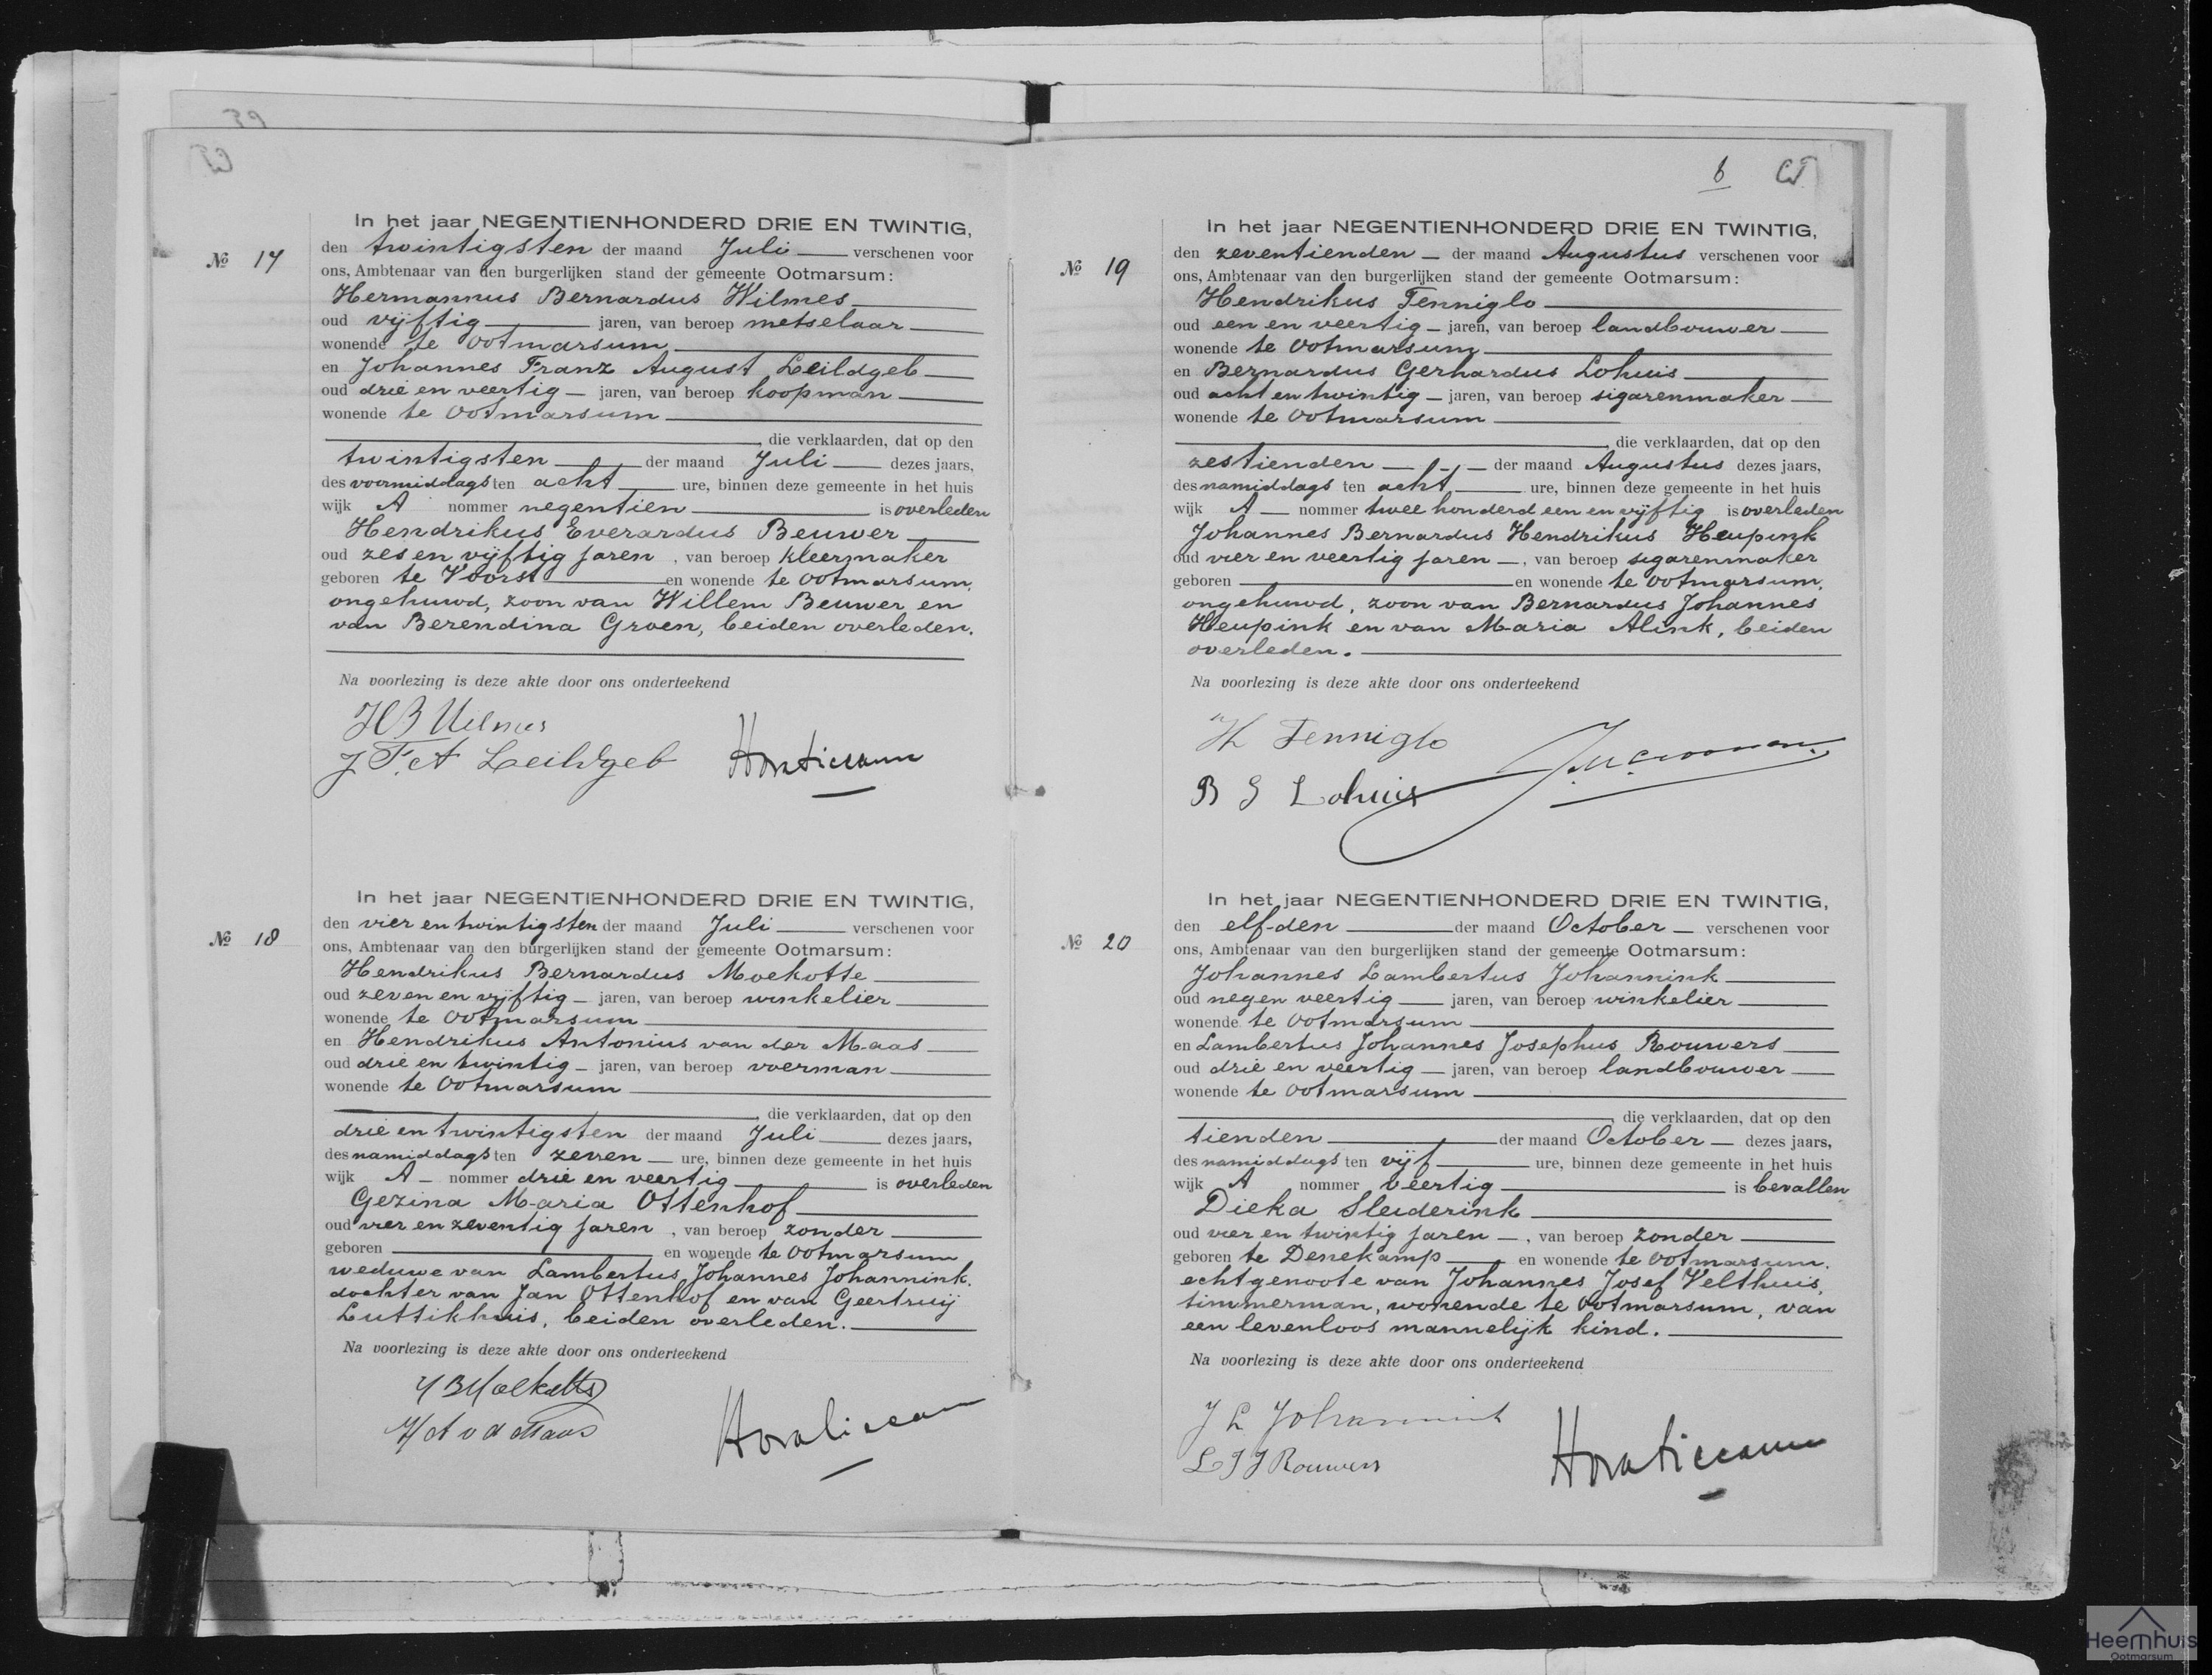 In het jaar NEGENTIENHONDERD DRIE EN TWINTIG,
den twintigsten der maand Juli verschenen voor
№ 17
ons, Ambtenaar van den burgerlijken stand der gemeente Ootmarsum:
Hermannus Bernardus Wilmes
oud vijftig jaren, van beroep metselaar
wonende te Ootmarsum
en Johannes Franz August Leildgeb
oud drie en veertig jaren, van beroep koopman
wonende te Ootmarsum
, die verklaarden, dat op den
twintigsten der maand Juli dezes jaars,
des voormiddags ten acht ure, binnen deze gemeente in het huis
wijk A nommer negentien is overleden
Hendrikus Everardus Beuwer
oud zes en vijftig jaren, van beroep kleermaker
geboren te Voorst en wonende te Ootmarsum,
ongehuwd, zoon van Willem Beuwer en
van Berendina Groen, beiden overleden.
Na voorlezing is deze akte door ons onderteekend
HB Wilmes
J. F. A Leildgeb
In het jaar NEGENTIENHONDERD DRIE EN TWINTIG,
den vier en twintigsten der maand Juli verschenen voor
№ 18
ons, Ambtenaar van den burgerlijken stand der gemeente Ootmarsum:
Hendrikus Bernardus Moekotte
oud zeven en vijftig jaren, van beroep winkelier
wonende te Ootmarsum
en Hendrikus Antonius van der Maas
oud drie en twintig jaren, van beroep voerman
wonende te Ootmarsum
, die verklaarden, dat op den
drie en twintigsten der maand Juli dezes jaars,
des namiddags ten zeven ure, binnen deze gemeente in het huis
wijk A nommer drie en veertig is overleden
Gezina Maria Ottenhof
oud vier en zeventig jaren, van beroep zonder
geboren en wonende te Ootmarsum
weduwe van Lambertus Johannes Johannink.
dochter van Jan Ottenhof en van Geertruij
Luttikhuis, beiden overleden.
Na voorlezing is deze akte door ons onderteekend
H B Moekotte
H A v d Maas
6 CT
In het jaar NEGENTIENHONDERD DRIE EN TWINTIG,
den zeventienden der maand Augustus verschenen voor
№ 19
ons, Ambtenaar van den burgerlijken stand der gemeente Ootmarsum:
Hendrikus Tenniglo
oud een en veertig jaren, van beroep landbouwer
wonende te Ootmarsum
en Bernardus Gerhardus Lohuis
oud acht en twintig jaren, van beroep sigarenmaker
wonende te Ootmarsum
, die verklaarden, dat op den
zestienden der maand Augustus dezes jaars,
des namiddags ten acht ure, binnen deze gemeente in het huis
wijk A nommer twee honderd een en vijftig is overleden
Johannes Bernardus Hendrikus Heupink
oud vier en veertig jaren, van beroep sigarenmaker
geboren en wonende te Ootmarsum,
ongehuwd, zoon van Bernardus Johannes
Heupink en van Maria Alink, beiden
overleden.
Na voorlezing is deze akte door ons onderteekend
H Tenniglo
B G Lohuis
In het jaar NEGENTIENHONDERD DRIE EN TWINTIG,
den elfden der maand October verschenen voor
№ 20
ons, Ambtenaar van den burgerlijken stand der gemeente Ootmarsum:
Johannes Lambertus Johannink
oud negen veertig jaren, van beroep winkelier
wonende te Ootmarsum
en Lambertus Johannes Josephus Rouwers
oud drie en veertig jaren, van beroep landbouwer
wonende te Ootmarsum
, die verklaarden, dat op den
tienden der maand October dezes jaars,
des namiddags ten vijf ure, binnen deze gemeente in het huis
wijk A nommer veertig is bevallen
Dieka Sleiderink
oud vier en twintig jaren, van beroep zonder
geboren te Denekamp en wonende te Ootmarsum.
echtgenoote van Johannes Josef Velthuis,
timmerman, wonende te Ootmarsum, van
een levenloos mannelijk kind.
Na voorlezing is deze akte door ons onderteekend
J L Johannink
L J J Rouwers
Heemhuis
Ootmarsum